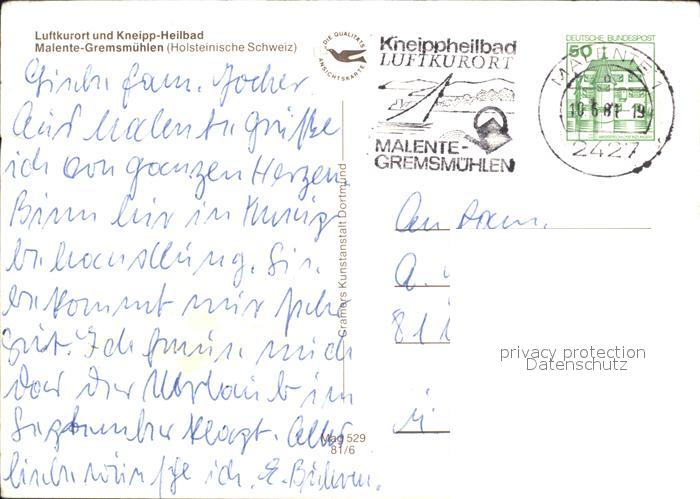 Luftkurort und Kneipp-Heilbad
Malente-Gremsmühlen (Holsteinische Schweiz)
DIE QUALITÄTS
ANSICHTSKARTE
Kneippheilbad
LUFTKURORT
MALENTE-
GREMSMÜHLEN
DEUTSCHE BUNDESPOST
50
MALENTE 1
10.6.81-19
2427
Liebe Fam.
Aus Malente grüße
ich von ganzen Herzen.
Binn hir in Kneip
behandlung. Sie
bekommt mir sehr
gut. Ich freue mich
das der Uhrlaub im
September klapt. Alles
liebe wünsche ich. E.
Cramers Kunstanstalt Dortmund
Mag 529
81/6
An Fam.
A.
81
privacy protection
Datenschutz